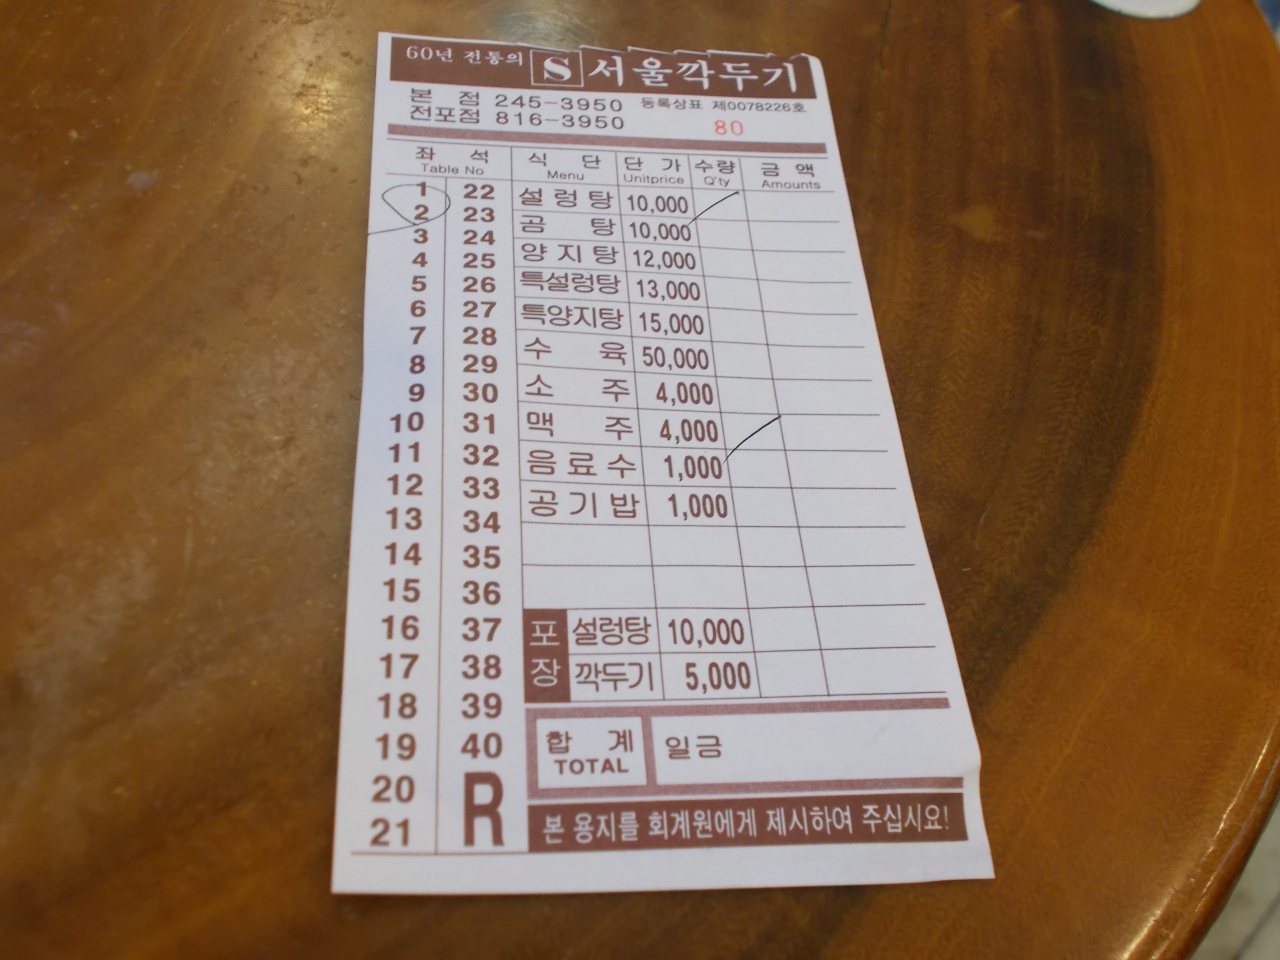 60년 전통의 S 서울깍두기
본 점 245-3950 등록상표 제0078226호
전포점 816-3950 80
좌 석 식 단 단 가 수량 금 액
Table No Menu Unitprice Q'ty Amounts
1 22 설렁탕 10,000
2 23 곰 탕 10,000
3 24 양지탕 12,000
4 25 특설렁탕 13,000
5 26 특양지탕 15,000
6 27 수 육 50,000
7 28 소 주 4,000
8 29 맥 주 4,000
9 30 음료수 1,000
10 31 공기밥 1,000
11 32
12 33
13 34
14 35
15 36
16 37 포장 설렁탕 10,000
17 38 깍두기 5,000
18 39
19 40 합 계 일금
TOTAL
20 R
21 본 용지를 회계원에게 제시하여 주십시요!